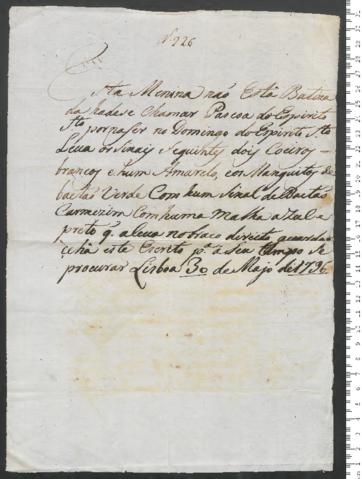 Nº 926
Sta Menina naõ Está Batiza
da hade se Chamar Pascoa do Espirito
Sto por naser no Domingo do Espirito Sto
Leva os Sinais Seguintes dois Coeiros
brancos e hum Amarelo, con Manguitos de
baetaõ Verde Com hum Sinal de Baetaõ
Carmezim Com huma Masha azul e
preto q. a leva no braco direito, guarda
se este Escrito pª a seu tempo se
procurar Lisboa 30 de Majo de 1796